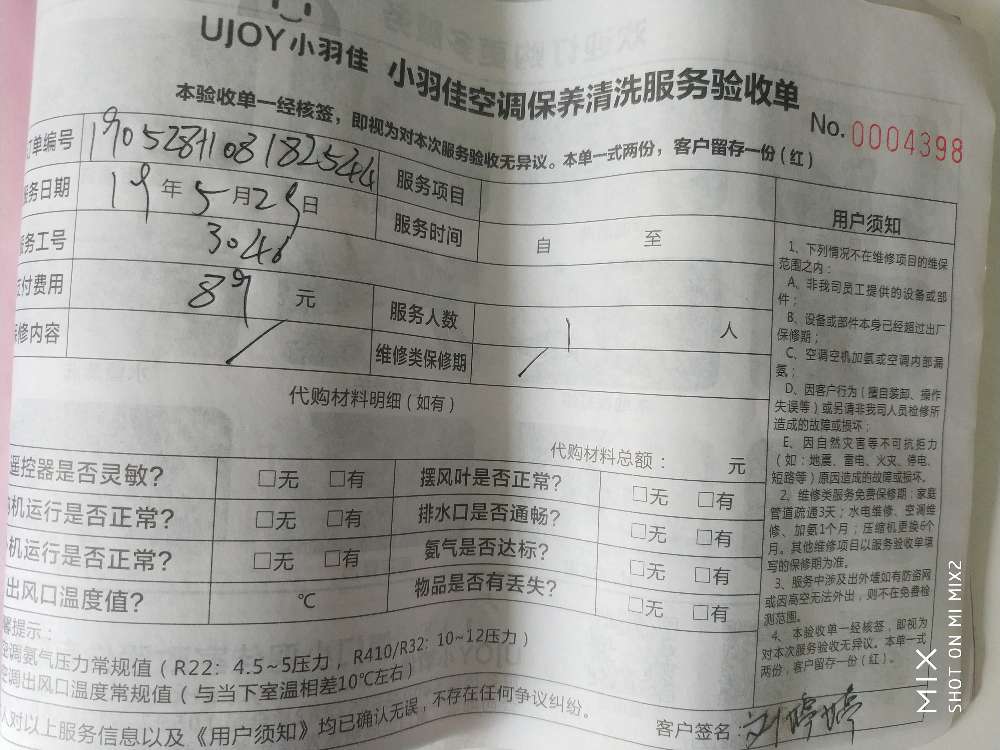 UJOY小羽佳 小羽佳空调保养清洗服务验收单
本验收单一经核签，即视为对本次服务验收无异议。本单一式两份，客户留存一份（红）
No. 0004398
单编号 服务项目
务日期 19 年 5 月 29 日 服务时间 自 至
务工号 3046
付费用 89 元 服务人数 1 人
修内容 / 维修类保修期 /
代购材料明细（如有）
代购材料总额： 元
遥控器是否灵敏？ □无 □有 摆风叶是否正常？ □无 □有
机运行是否正常？ □无 □有 排水口是否通畅？ □无 □有
机运行是否正常？ □无 □有 氨气是否达标？ □无 □有
出风口温度值？ ℃ 物品是否有丢失？ □无 □有
器提示：
空调氨气压力常规值（R22：4.5~5压力，R410/R32：10~12压力）
空调出风口温度常规值（与当下室温相差10℃左右）
人对以上服务信息以及《用户须知》均已确认无误，不存在任何争议纠纷。
客户签名：刘婷婷
用户须知
1、下列情况不在维修项目的维保
范围之内：
A、非我司员工提供的设备或部
件；
B、设备或部件本身已经超过出厂
保修期；
C、空调空机加氨或空调内部漏
氨；
D、因客户行为（擅自装卸、操作
失误等）或另请非我司人员检修所
造成的故障或损坏；
E、因自然灾害等不可抗拒力
（如：地震、雷电、火灾、停电、
短路等）原因造成的故障或损坏。
2、维修类服务免费保修期：家庭
管道疏通3天；水电维修、空调维
修、加氨1个月；压缩机更换6个
月。其他维修项目以服务验收单填
写的保修期为准。
3、服务中涉及出外墙如有防盗网
或因高空无法外出，则不在免费检
测范围。
4、本验收单一经核签，即视为
对本次服务验收无异议。本单一式
两份，客户留存一份（红）。
MIX
SHOT ON MI MIX2